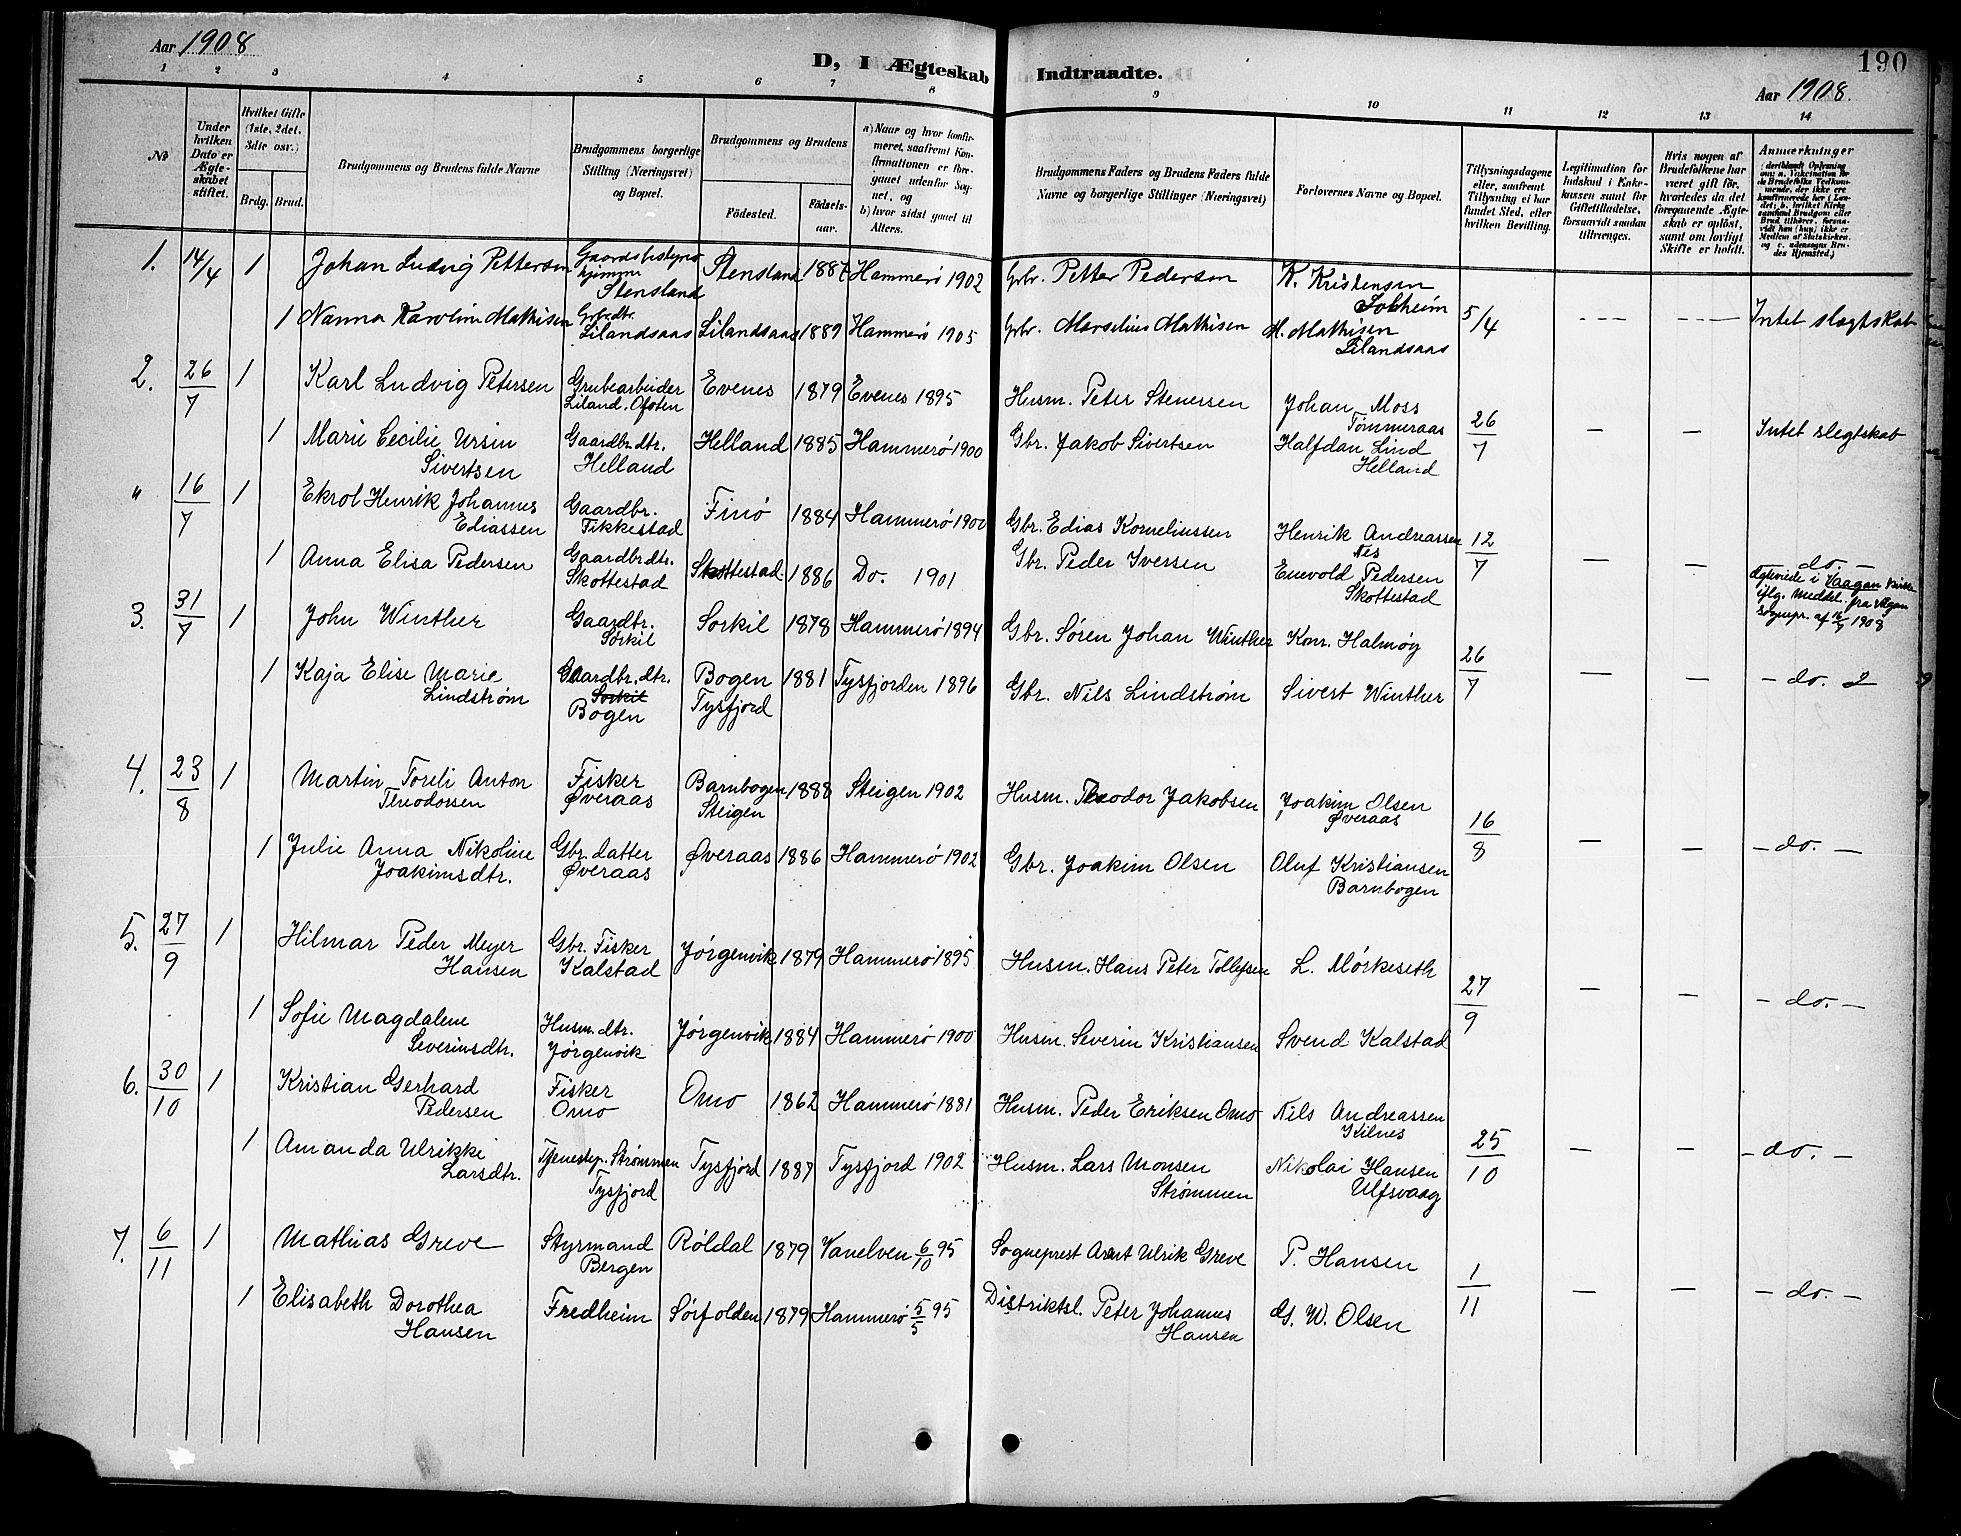 Aar 1908
D, I Ægteskab Indtraadte.
190
Aar 1908.
1 2 3 4 5 6 7 8 9 10 11 12 13 14
No
Under hvilken Dato er Ægteskabet stiftet.
Hvilket Gifte (1ste, 2det, 3die osv.)
Brdg. Brud.
Brudgommens og Brudens fulde Navne
Brudgommens borgerlige Stilling (Næringsvei) og Bopæl.
Brudgommens og Brudens
Födested. Födselsaar.
a) Naar og hvor konfirmeret, saafremt Konfirmationen er foregaaet udenfor Sognet, og
b) hvor sidst gaaet til Alters.
Brudgommens Faders og Brudens Faders fulde Navne og borgerlige Stillinger (Næringsvei)
Forlovernes Navne og Bopæl.
Tillysningsdagene eller, saafremt Tillysning ei har fundet Sted, efter hvilken Bevilling.
Legitimation for Indskud i Enkekassen samt for Giftetilladelse, forsaavidt saadan tiltrænges.
Hvis nogen af Brudefolkene har været gift för, hvorledes da det foregaaende Ægteskab er oplöst, samt om lovligt Skifte er holdt.
Anmærkninger
1. 14/4 1 Johan Ludvig Pettersen Gaardsbestyrer Stensland Stensland 1887 Hammerö 1902 Gbr. Petter Pedersen K. Kristensen Solheim
1 Nanna Karoline Mathisen Gbr.dtr. Lilandsaas Lilandsaas 1889 Hammerö 1905 Gbr. Marselius Mathisen M. Mathisen Lilandsaas 5/4 - - - - - - Intet slægtskab
2. 26/7 1 Karl Ludvig Petersen Grubearbeider Liland. Ofoten Evenes 1879 Evenes 1895 Husm. Peter Stenersen Johan Moss Tømmeraas
1 Marie Cecilie Ursin Sivertsen Gaardbr. dtr. Helland Helland 1885 Hammerö 1900 Gbr. Jakob Sivertsen Halfdan Lind Helland 26/7 — — Intet slegtskab
" 16/7 1 Ekrol Henrik Johannes Ediassen Gaardbr. Fikkestad Finø 1884 Hammerø 1900 Gbr. Edias Korneliussen Henrik Andreassen Nes
1 Anna Elisa Pedersen Gaardbr.dtr. Skottestad Skottestad 1886 Do. 1901 Gbr. Peder Iversen Enevold Pedersen Skottestad 12/7 — — do. —
Ægteviede i Vaagan Kirke iflg. Meddel. fra Vågan sognepr. af 1908
3. 31/7 1 John Winther Gaardbr. Sorkil Sorkil 1878 Hammerø 1894 Gbr. Søren Johan Winther Konr. Halmøy
1 Kaja Elise Marie Lindstrøm Gaardbr. dtr. Sorkil Bogen Bogen Tysfjord 1881 Tysfjorden 1896 Gbr. Nils Lindstrøm Sivert Winther 26/7 — — — do.
4. 23/8 1 Martin Toreli Anton Theodorsen Fisker Øveraas Barnbogen Steigen 1888 Steigen 1902 Husm. Theodor Jakobsen Joakim Olsen Øveraas
1 Julie Anna Nikoline Joakimsdtr. Gbr. datter Øveraas Øveraas 1886 Hammerø 1902 Gbr. Joakim Olsen Oluf Kristiansen Barnbogen 16/8 — — — do. —
5. 27/9 1 Hilmar Peder Meyer Hansen Gbr. Fisker Kalstad Jørgenvik 1879 Hammerø 1895 Husm. Hans Peter Tollefsen L. Mørkeseth
1 Sofie Magdalene Severinsdtr. Husm. dtr. Jørgenvik Jørgenvik 1884 Hammerø 1900 Husm. Severin Kristiansen Svend Kalstad 27/9 — — — do. —
6. 30/10 1 Kristian Gerhard Pedersen Fisker Omo Omo 1862 Hammerø 1881 Husm. Peder Eriksen Omo Nils Andreassen Kilnes
1 Amanda Ulrikke Larsdtr. Tjenestep. Strømmen Tysfjord Tysfjord 1887 Tysfjord 1902 Husm. Lars Monsen Strømmen Nikolai Hansen Ulfsvaag 25/10 — — — do. —
7. 6/11 1 Mathias Greve Styrmand Bergen Røldal 1879 Vanelven 6/10 95 Sogneprest Arent Ulrik Greve P. Hansen
1 Elisabeth Dorothea Hansen Fredheim Sørfolden 1879 Hammerø 5/5 95 Distriktsl. Peter Johannes Hansen G. W. Olsen 1/11 — — — do. —